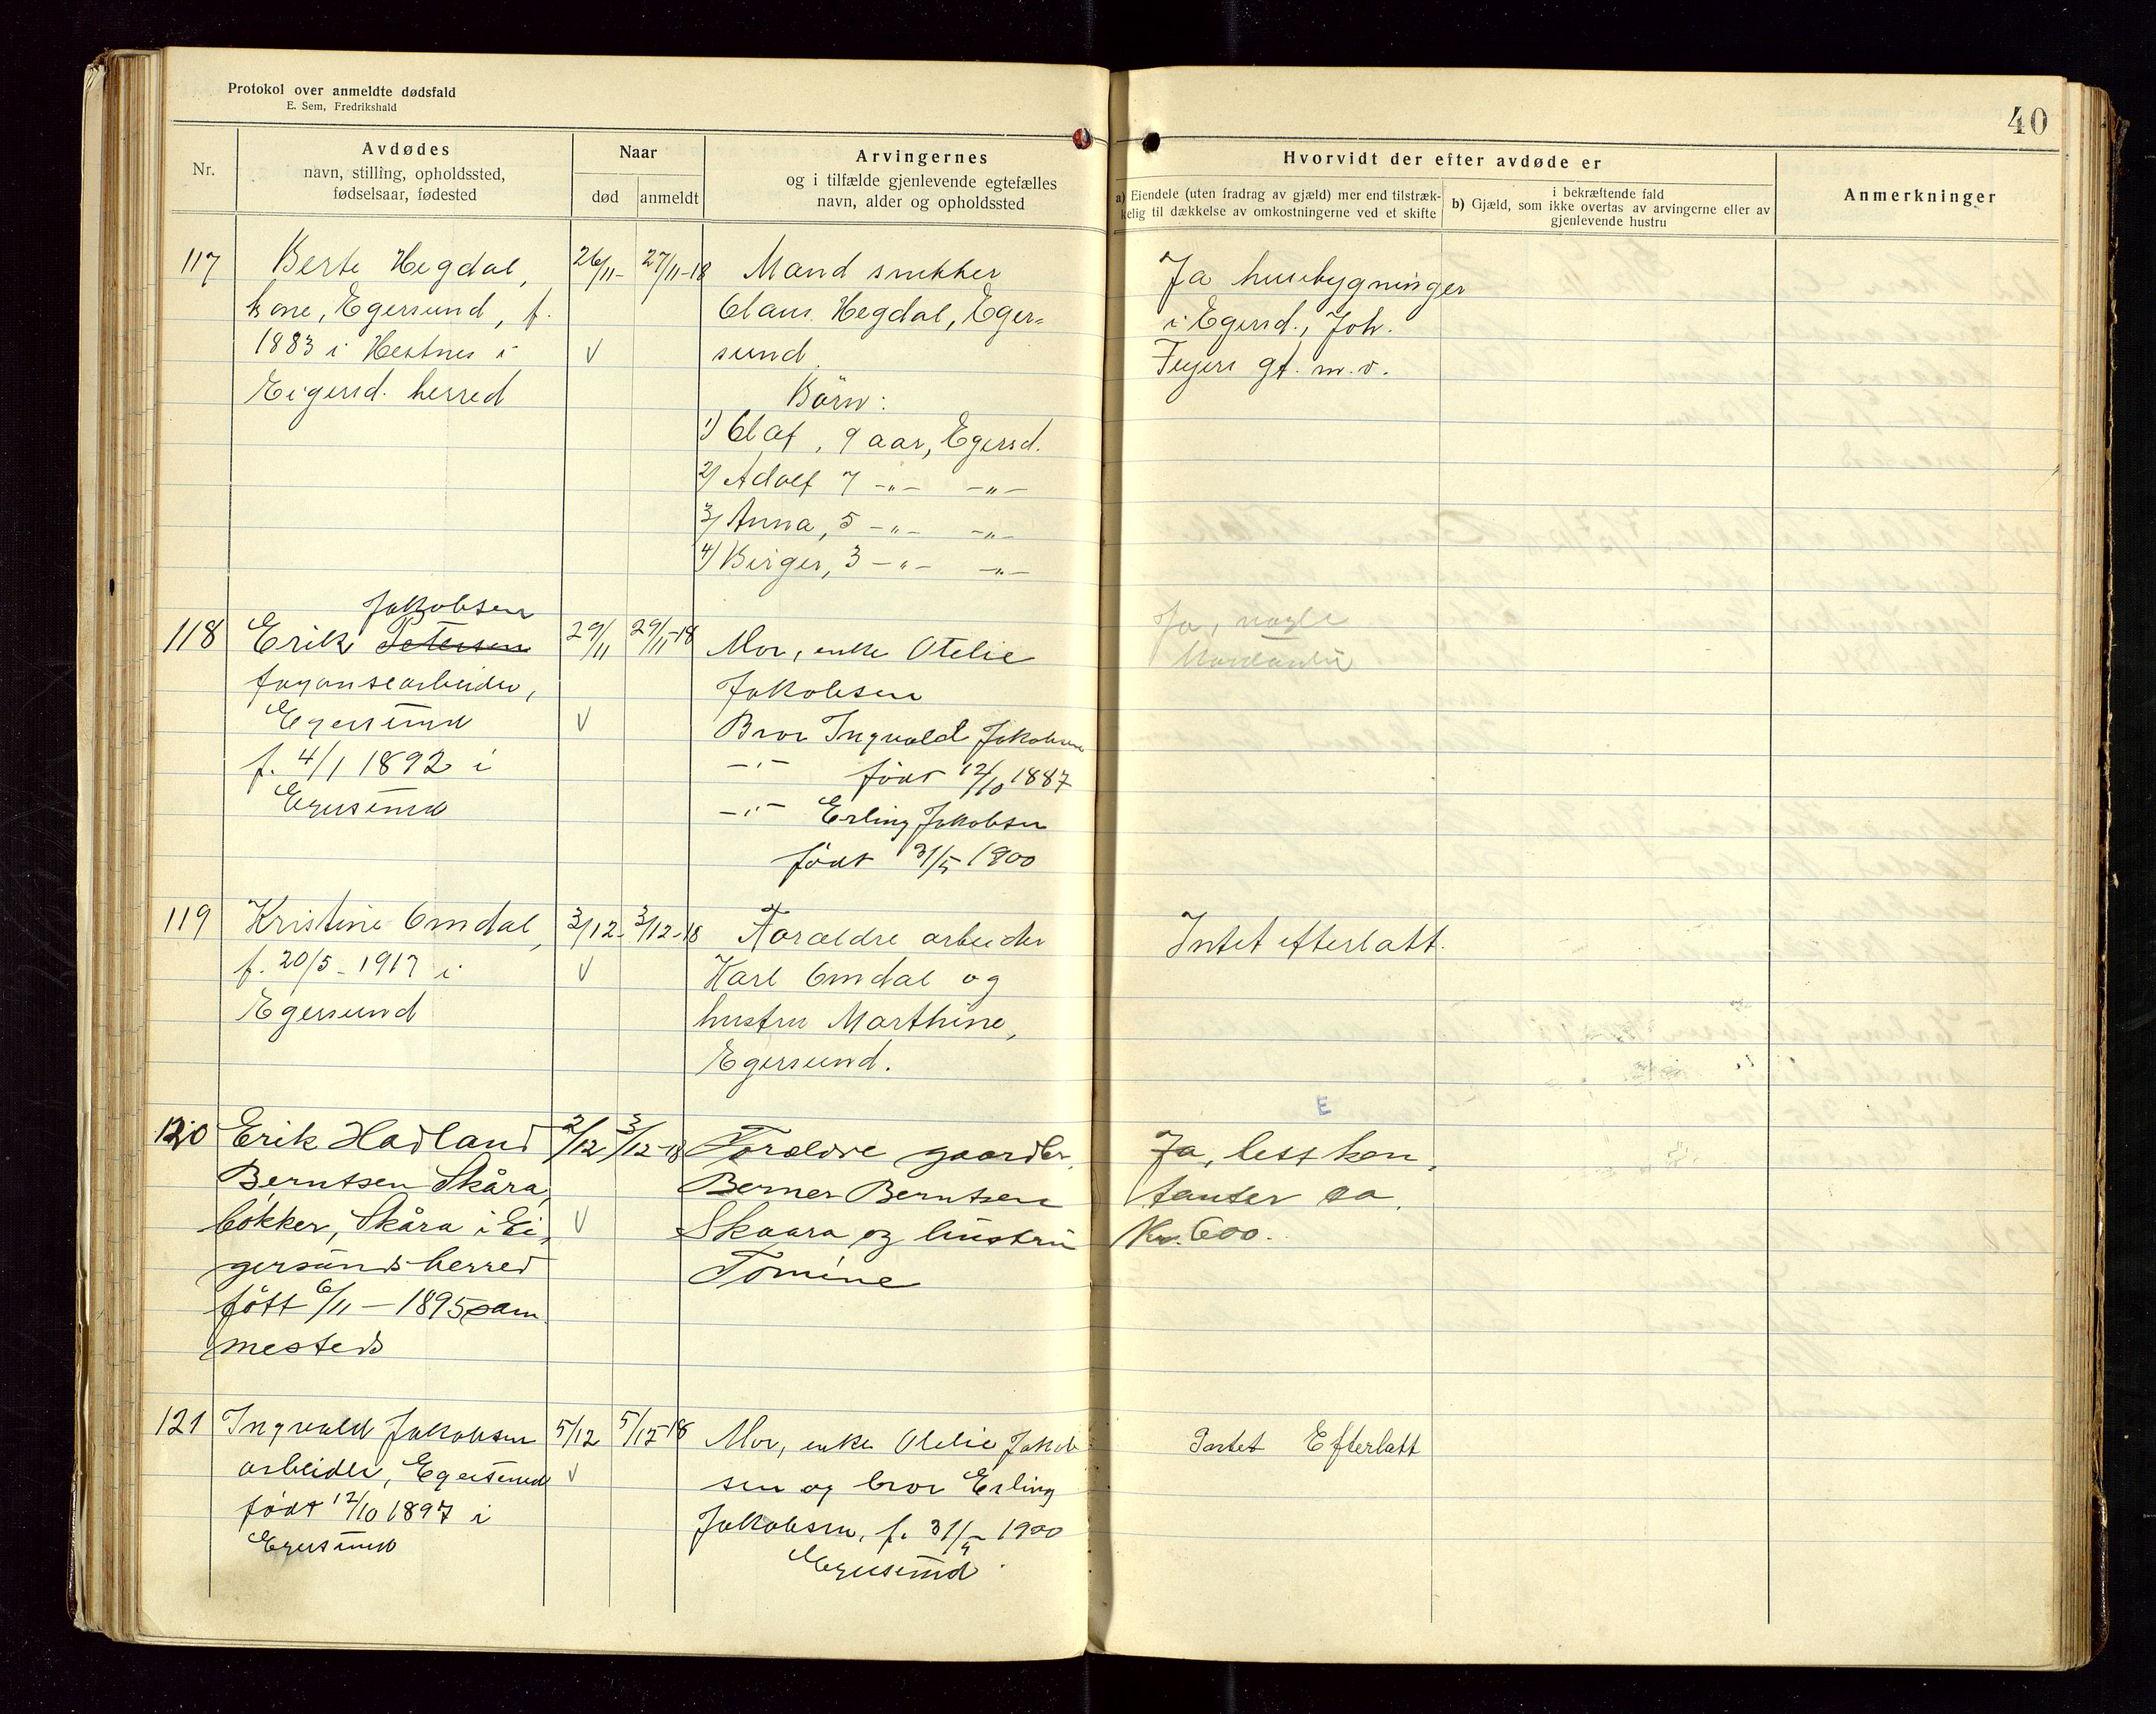 Protokol over anmeldte dødsfald
E. Sem, Fredrikshald
40
Nr.
Avdødes
navn, stilling, opholdssted,
fødselsaar, fødested
Naar
død
anmeldt
Arvingernes
og i tilfælde gjenlevende egtefælles
navn, alder og opholdssted
Hvorvidt der efter avdøde er
a) Eiendele (uten fradrag av gjæld) mer end tilstræk-
kelig til dækkelse av omkostningerne ved et skifte
i bekræftende fald
b) Gjæld, som ikke overtas av arvingerne eller av
gjenlevende hustru
Anmerkninger
117
Berte Hegdal,
kone, Egersund, f.
1883 i Hestnes i
Eigersd. herred
26/11-
27/11-18
Mand snekker
Olaus Hegdal, Eger=
sund
Børn:
1) Olaf, 9 aar, Egersd.
2) Adolf 7 -"- -"-
3) Anna, 5 -"- -"-
4) Birger, 3 -"- -"-
Ja husebygninger
i Egersd., Joh.
Feyers gt. m.v.
118
Jakobsen
Erik Petersen
fayansearbeider,
Egersund
f. 4/1 1892 i
Egersund
29/11
29/11-18
Mor, enke Otelie
Jakobsen
Bror Ingvald Jakobsen
-"- født 12/10 1887
-"- Erling Jakobsen
født 31/5 1900
Ja, nogle
119
Kristine Omdal,
f. 20/5-1917 i
Egersund
3/12-
3/12-18
Forældre arbeider
Karl Omdal og
hustru Marthine,
Egersund.
Intet efterlatt.
120
Erik Hadland
Berntsen Skåra,
bökker, Skåra i Ei,
gersunds herred
fött 6/11-1895 sam
mesteds
2/12
3/12-18
Forældre gaardbr.
Berner Berntsen
Skaara og hustru
Tomine
E
Ja, lest kon,
tanter ca.
Kr. 600.
121
Ingvald Jakobsen
arbeider, Egersund
født 12/10 1897 i
Egersund
5/12
5/12-18
Mor, enke Otelie Jakob
sen og bror Erling
Jakobsen, f. 31/5 1900
Egersund
Intet Efterlatt